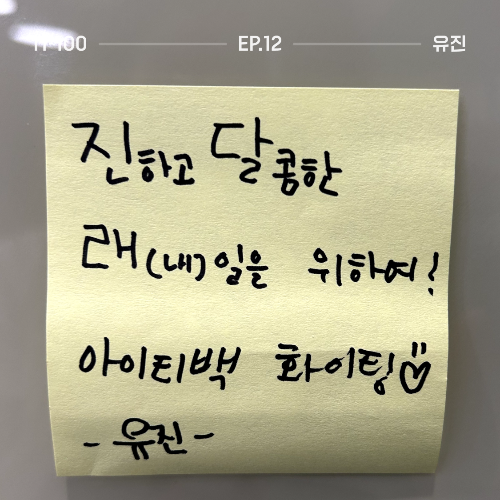 IT 100 EP.12 유진
진하고 달콤한
래(내)일을 위하여!
아이티백 화이팅
-유진-